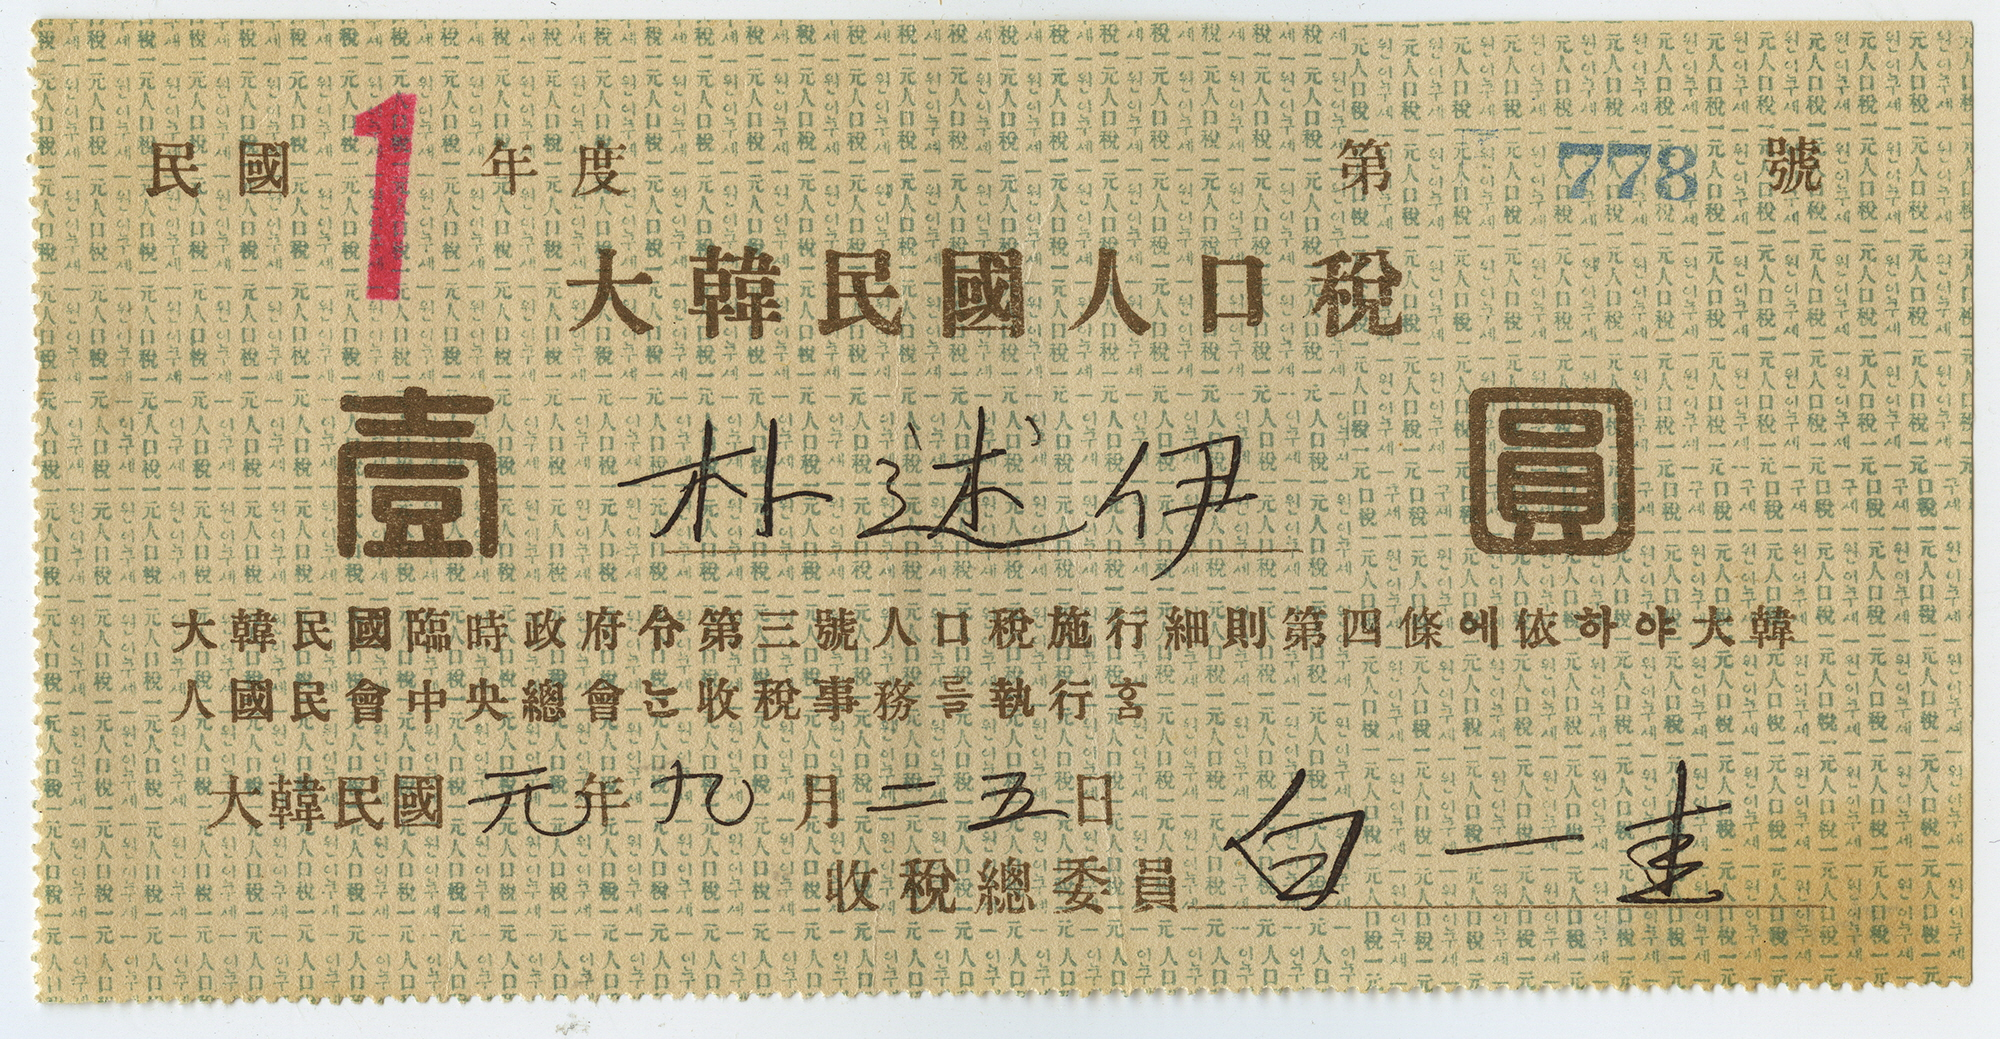 民國 1 年度 第 778 號
大韓民國人口稅
壹 朴述伊 圓
大韓民國臨時政府令第三號人口稅施行細則第四條에依하야大韓
人國民會中央總會는收稅事務를執行홈
大韓民國元年九月二五日
收稅總委員 白一圭